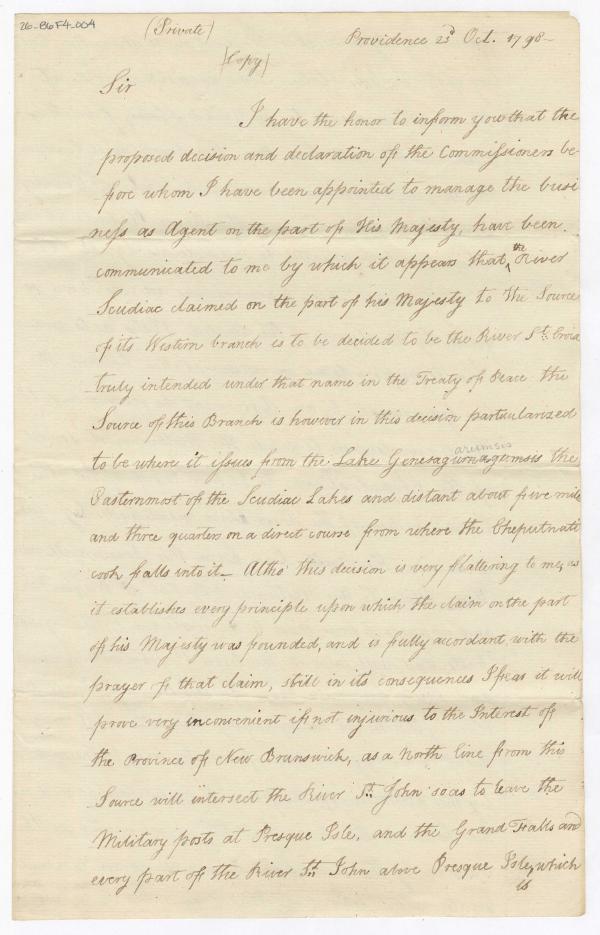 26-B6F4-004
(Private)
Providence 23d Oct. 1798-
(Copy)
Sir
I have the honor to inform you that the
proposed decision and declaration of the Commissioners be-
-fore whom I have been appointed to manage the busi
ness as Agent on the part of His Majesty, have been
communicated to me by which it appears that ^ the River
Scudiac claimed on the part of his Majesty to the Source
of its Western branch is to be decided to be the River St. Croix
truly intended under that name in the Treaty of Peace the
Source of this Branch is however in this decision particularized
to be where it issues from the Lake the
Easternmost of the Scudiac Lakes and distant about five mile
and three quarters on a direct course from where the Cheputnati
cook falls into it_ Altho' this decision is very flattering to me, as
it establishes every principle upon which the claim on the part
of his Majesty was founded, and is fully accordant with the
prayer of that claim, still in its consequences I fear it will
prove very inconvenient if not injurious to the Interest of
the Province of New Brunswick, as a North line from this
Source will intersect the River St. John so as to leave the
Military posts at Presque Isle, and the Grand Falls and
every part of the River St. John above Presque Isle, which
is